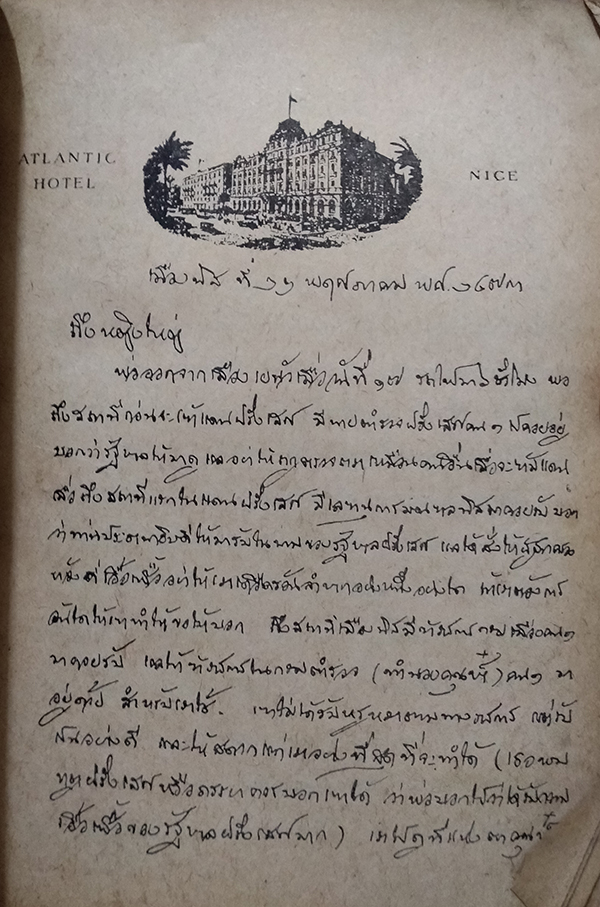 ATLANTIC
HOTEL
NICE
เมืองนีส ที่ ๑๖ พฤษภาคม พ.ศ. ๒๔๗๓
ถึงหญิงใหญ่
พ่อออกจากเมืองเยนัวเมื่อวันที่ ๑๗ รถไฟมา ๖ ชั่วโมง พอ
ถึงสถานีก่อนจะเข้าแดนฝรั่งเศส มีนายตำรวจฝรั่งเศสคน ๑ มาคอยอยู่
บอกว่ารัฐบาลให้มาดูแลอย่าให้ถูกตรวจตราเหมือนคนอื่นเมื่อจะเข้าแดน
เมื่อถึงสถานีแรกในแดนฝรั่งเศส มีเลขานุการมณฑลนีสมาคอยรับบอก
ว่าท่านประธานาธิบดีให้มารับในนามของรัฐบาลฝรั่งเศส และได้สั่งให้
อย่าให้เรา อย่างหนึ่งอย่างใด ถ้าเราต้องการ
อันใดให้เขาทำให้ขอให้บอก ถึงสถานีเมืองนีสมีข้าราชการ เมืองคน ๑
มาคอยรับ และให้ข้าราชการในกรมตำรวจ ( ) คน ๑ มา
อยู่ด้วย สำหรับเราใช้. เขาไม่ได้รับ ทางราชการ แต่รับ
เป็นอย่างดี และให้สดวกแก่เราอย่างที่สุดที่จะทำได้ (เธอพบ
ทูตฝรั่งเศสหรือ บอกเขาได้ ว่าพ่อบอกไปว่าได้รับความ
เอื้อเฟื้อของรัฐบาลฝรั่งเศสมาก) เรา